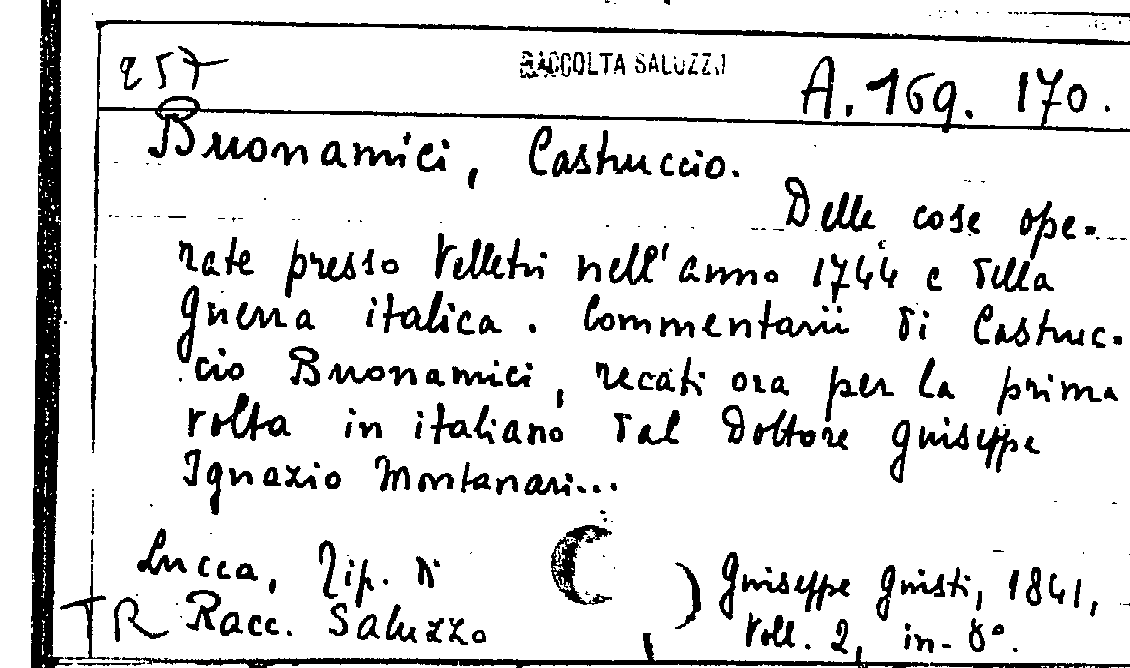 257 RACCOLTA SALUZZO A. 169. 170.
Buonamici, Castruccio.
Delle cose ope-
rate presso Velletri nell'anno 1744 e della
guerra italica. Commentarii di Castruc-
cio Buonamici, recati ora per la prima
volta in italiano dal Dottore Giuseppe
Ignazio Montanari...
Lucca, Tip. di Giuseppe Giusti, 1841,
TR Racc. Saluzzo Voll. 2, in-8°.